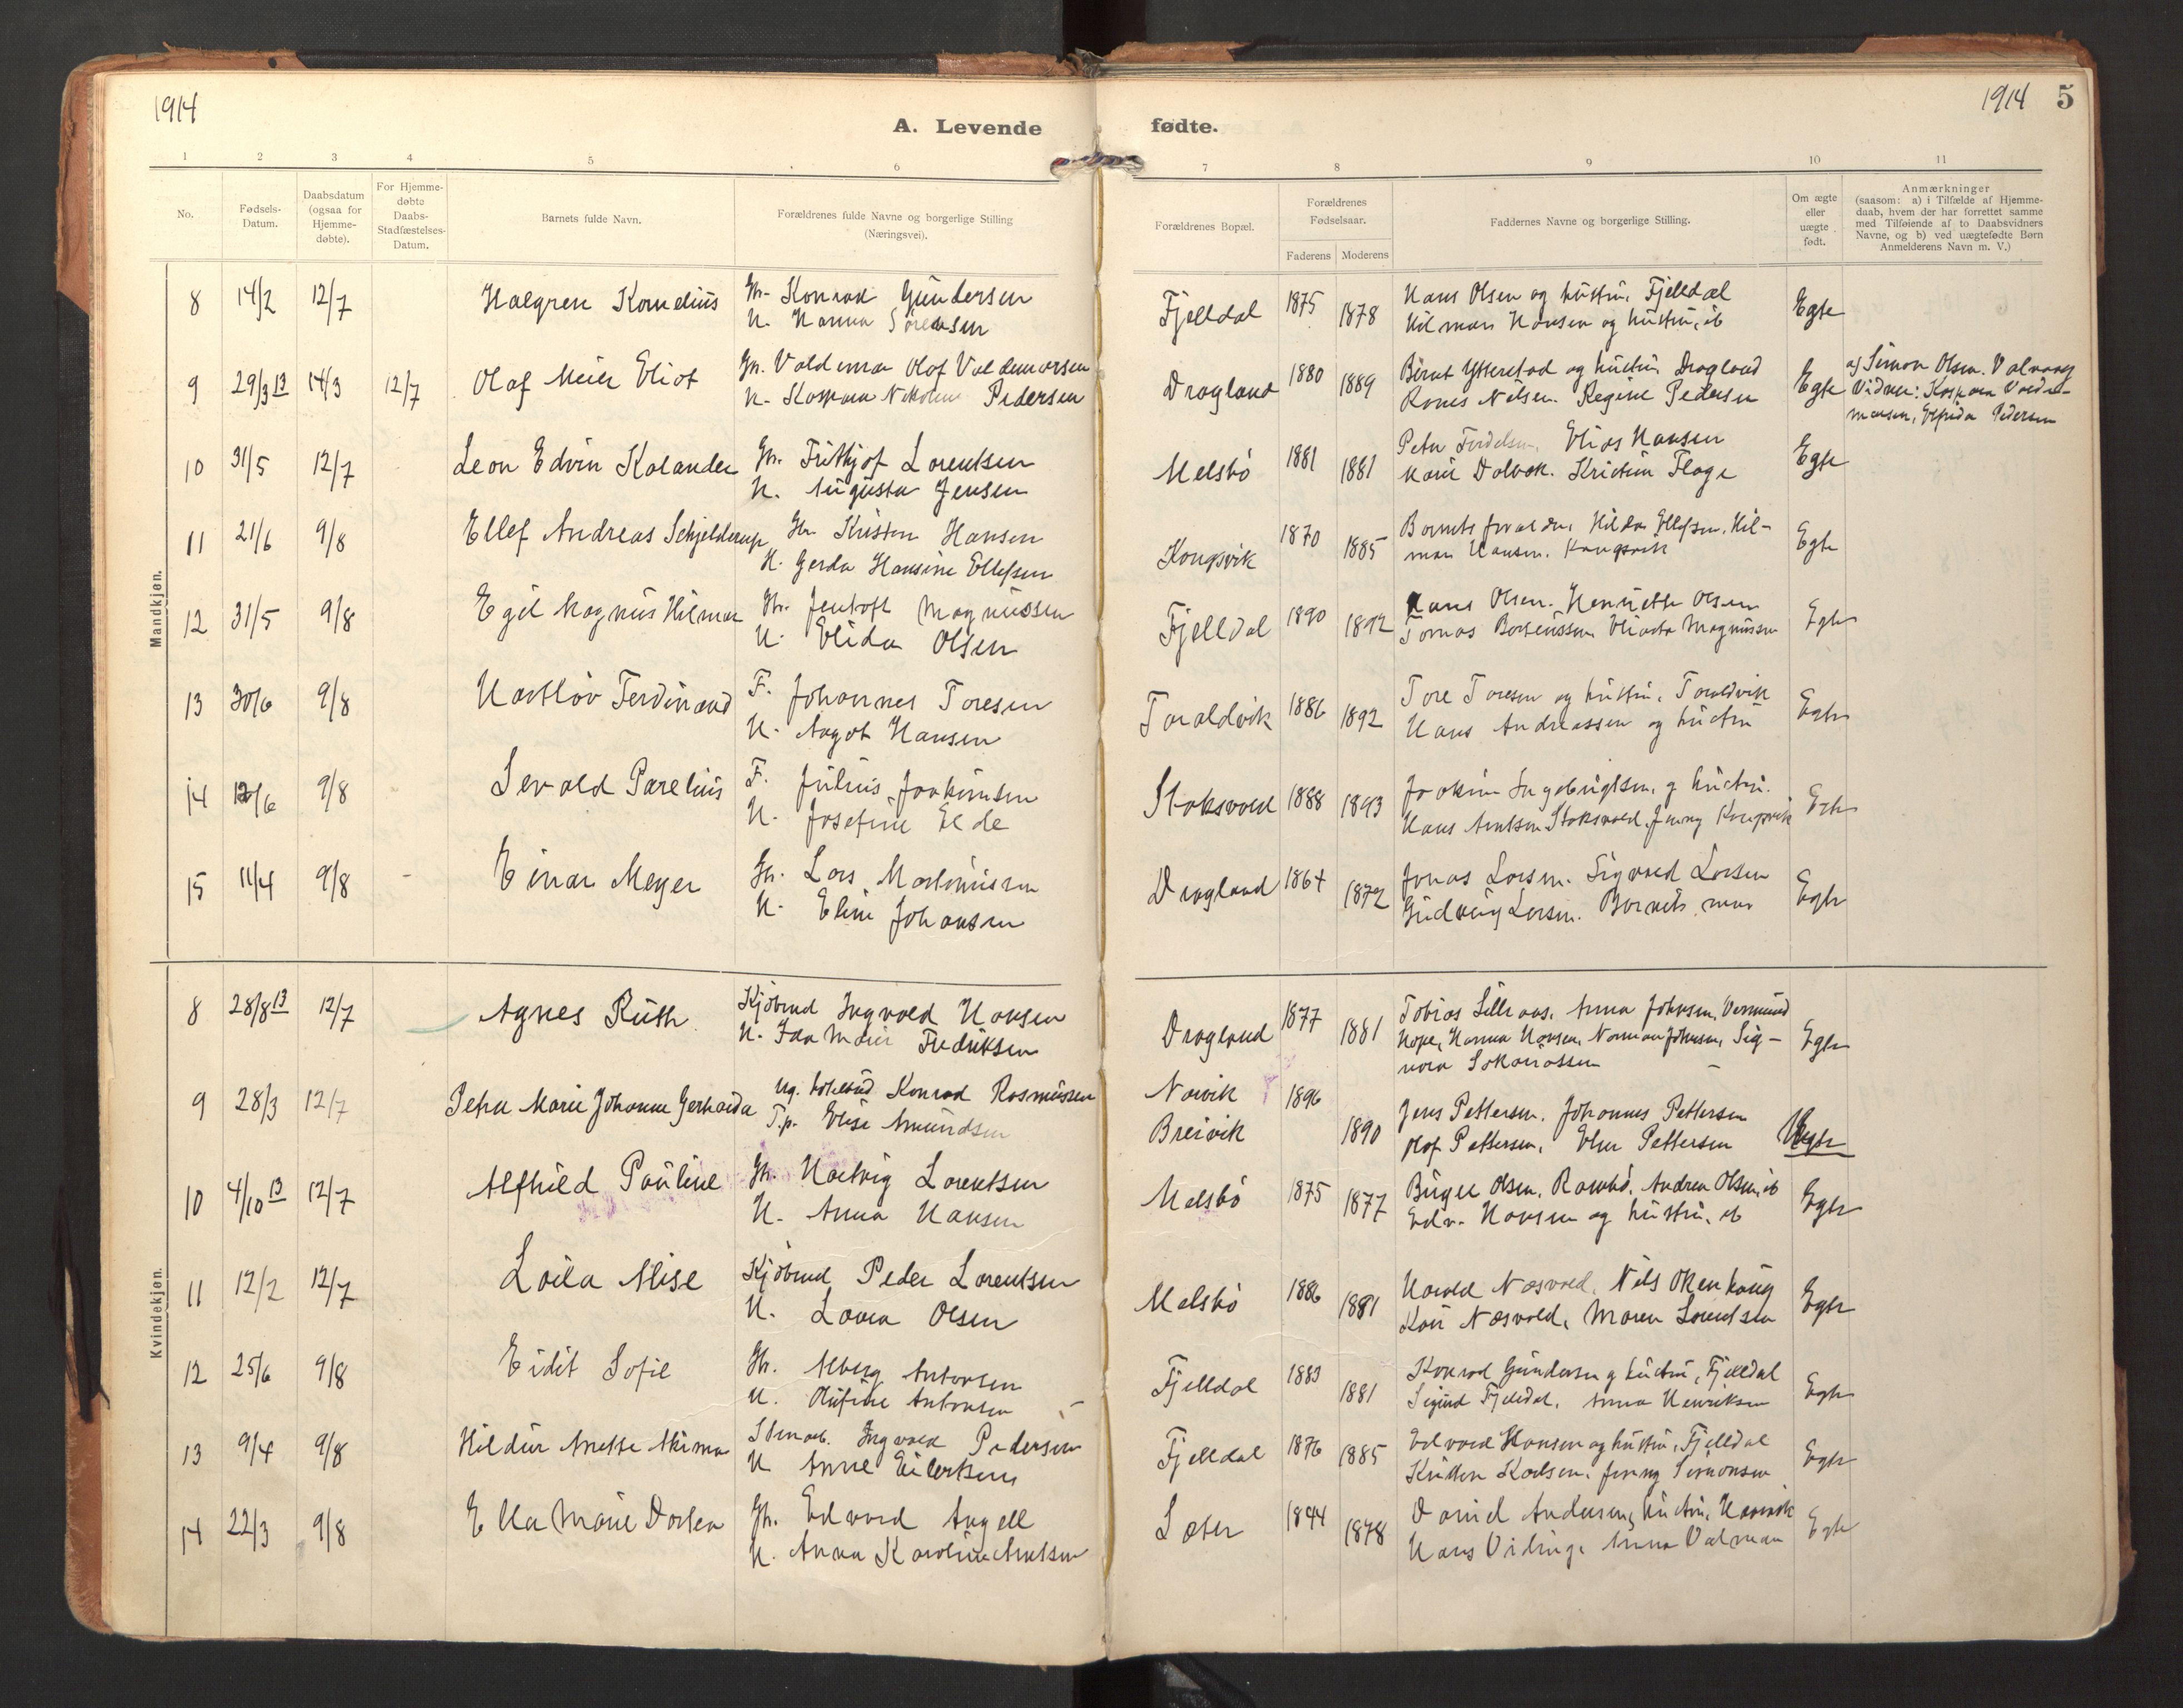 1914
A. Levende
fødte.
1914 5
1 2 3 4 5 6 7 8 9 10 11
No.
Fødsels-
Datum.
Daabsdatum
(ogsaa for
Hjemme-
døbte).
For Hjemme-
døbte
Daabs-
Stadfæstelses-
Datum.
Barnets fulde Navn.
Forældrenes fulde Navne og borgerlige Stilling
(Næringsvei).
Forældrenes Bopæl.
Forældrenes
Fødselsaar.
Faderens Moderens
Faddernes Navne og borgerlige Stilling.
Om ægte
eller
uægte
født.
Anmærkninger
(saasom: a) i Tilfælde af Hjemme-
daab, hvem der har forrettet samme
med Tilføiende af to Daabsvidners
Navne, og b) ved uægtefødte Børn
Anmelderens Navn m. V.)
Mandkjøn.
8 14/2 12/7 Halgren Kornelius Gbr. Konrad Gundersen
H. Hanna Sørensen
Fjelldal 1875 1878 Hans Olsen og hustru, Fjelldal
Hilmar Hansen og hustru, ib
Egte
9 29/3 13 14/3 12/7 Olaf Meier Eliot Gbr. Valdemar Olaf Valdemarsen
H. Kaspara Nikoline Pedersen
Dragland 1880 1889 Bernt Ytterstad og hustru Dragland
Nilsen. Regine Pedersen
Egte
a) Simon Olsen.
Vidner: Kaspara Valde-
marsen, Pedersen
10 31/5 12/7 Leon Edvin Kolander Gbr. Frithjof Lorentsen
H. Augusta Jensen
Melsbø 1881 1881 Peter Elias Hansen
Marie Kristine Flage
Egte
11 21/6 9/8 Ellef Andreas Schjelderup Gbr. Kristen Hansen
H. Gerda Hansine Ellefsen
Kongsvik 1870 1885 Barnets forældre, Hilda Ellefsen, Hil-
mar Hansen. Kongsvik
Egte
12 31/5 9/8 Egil Magnus Hilmar Gbr. Jentoft Magnussen
H. Elida Olsen
Fjelldal 1890 1892 Hans Olsen. Henriette Olsen
Tomas Magnussen
Egte
13 30/6 9/8 Hartløv Ferdinand F. Johannes Toresen
H. Aagot Hansen
Toraldvik 1886 1892 Tore Toresen og hustru, Toraldvik
Hans Andreassen og hustru
Egte
14 12/6 9/8 Sevald Parelius F. Julius Joakimsen
H. Josefine Elde
Stoksvold 1888 1893 Joakim Ingebrigtsen og hustru.
Hans Arntsen Stoksvold, Jenny Kongsvik
Egte
15 11/4 9/8 - Einar Meyer Gbr. Lars Martinussen
H. Eline Johansen
Dragland 1864 1872 Jonas Larsen. Sigvard Larsen
Gudveig Larsen. Barnets mor
Egte
Kvindekjøn.
8 28/8 13 12/7 Agnes Ruth Kjøbmd Ingvald Hansen
H. Ida Marie Fredriksen
Dragland 1877 1881 Tobias Lilleaas. Anna Johnsen, Vermund
Hope, Hanna Hansen, Norman Johnsen, Sig-
nora Sakariassen
Egte
9 28/3 12/7 Petra Marie Johanne Gerharda Ug. Konrad Rasmussen
T.p. Elise Amundsen
Narvik
Breivik
1896 1890 Jens Pettersen. Johannes Pettersen
Olaf Pettersen, Pettersen
Uegte
10 4/10 13 12/7 Alfhild Pauline Gbr. Hartvig Lorentsen
H. Anna Hansen
Melsbø 1875 1877 Birger Olsen, Andrea Olsen, ib
Edv. Hansen og hustru, ib
Egte
11 12/2 12/7 Laila Alise Kjøbmd Peder Lorentsen
H. Laura Olsen
Melsbø 1886 1881 Harald Næsvold, Nils Økenhaug
Kari Næsvold, Maren Lorentsen
Egte
12 25/6 9/8 Eidit Sofie Gbr. Alberg Antonsen
H. Olufine Antonsen
Fjelldal 1883 1881 Konrad Gundersen og hustru, Fjelldal
Sigurd Fjelldal, Anna Henriksen
Egte
13 9/4 9/8 Hildur Anette Ingvald Pedersen
H. Anne Eilertsen
Fjelldal 1876 1885 Edvard Hansen og hustru, Fjelldal
Karlsen, Jenny Simonsen
Egte
14 22/3 9/8 Ella Marie Dortea Gbr. Edvard Angell
H. Anna Karoline Arntsen
1844 1878 David Andersen, hustru,
Hans Viding, Anna Valman
Egte